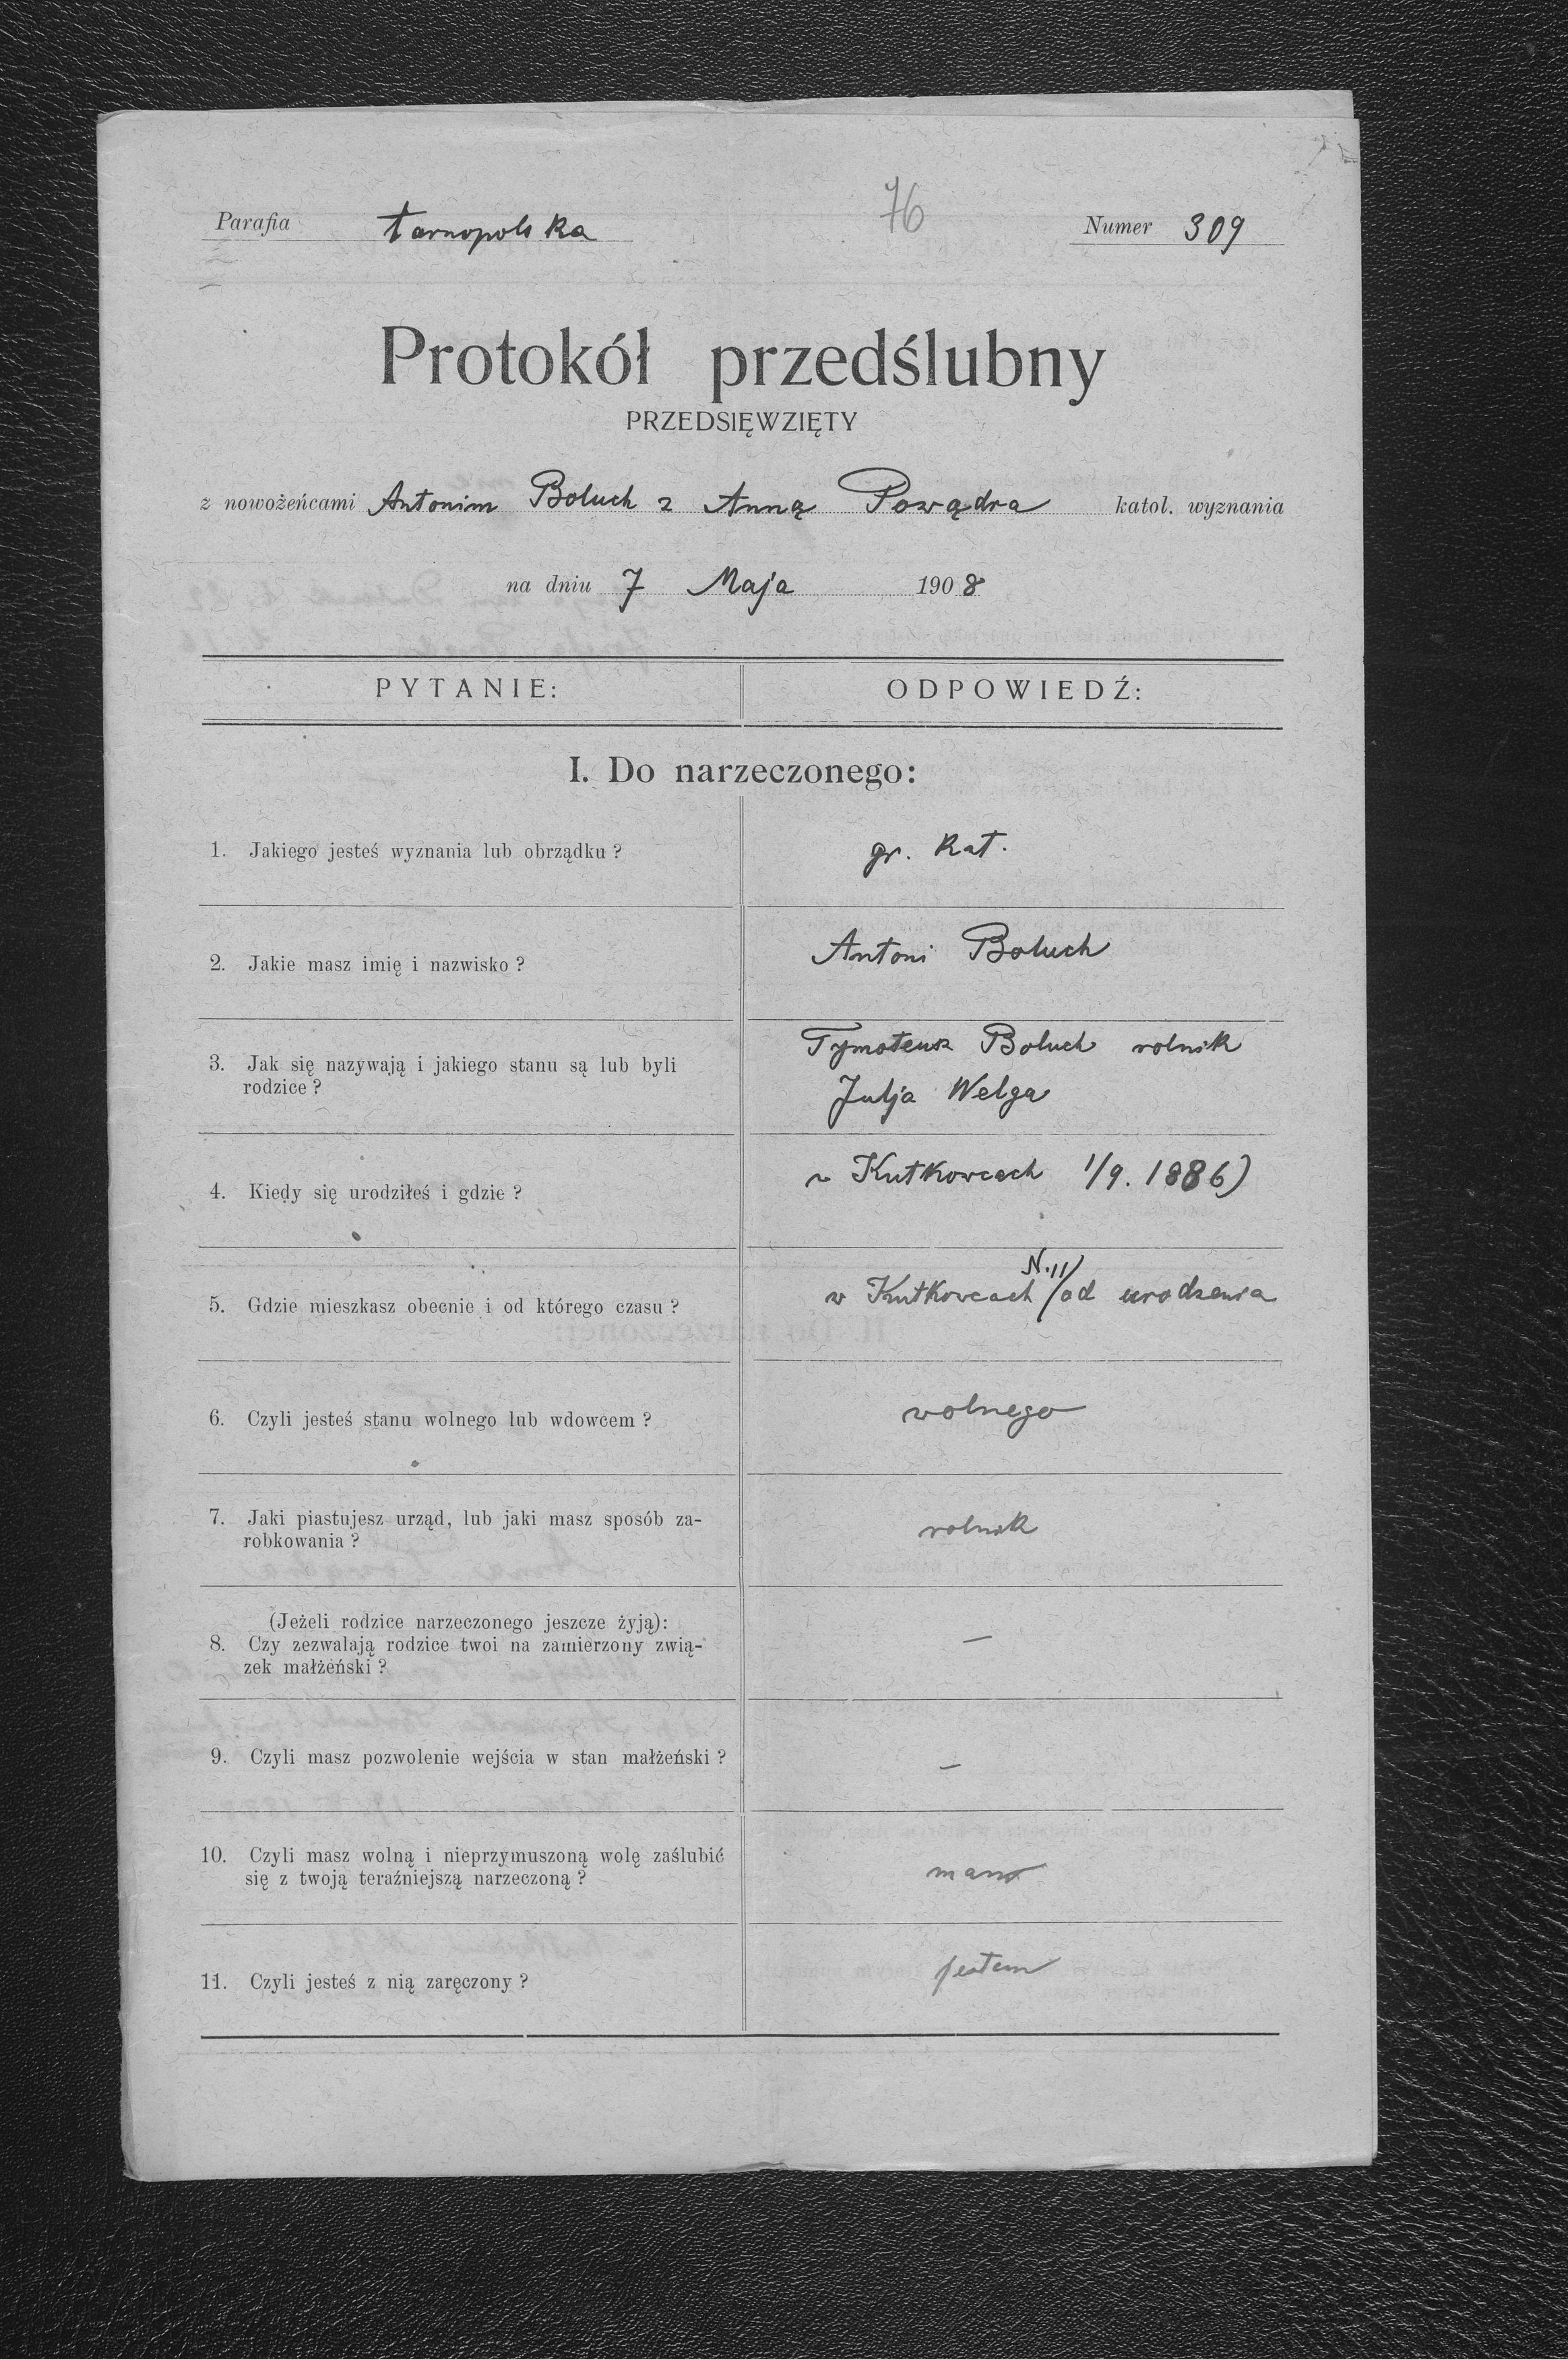 76
Parafia tarnopolska Numer 309
Protokół przedślubny
PRZEDSIĘWZIĘTY
z nowożeńcami Antonim Boluch z Anną Powądra katol. wyznania
na dniu 7 Maja 1908
PYTANIE: ODPOWIEDŹ:
I. Do narzeczonego:
1. Jakiego jesteś wyznania lub obrządku ? gr. kat.
2. Jakie masz imię i nazwisko ? Antoni Boluch
3. Jak się nazywają i jakiego stanu są lub byli
rodzice ?
Tymoteusz Boluch rolnik
Julja Welga
4. Kiedy się urodziłeś i gdzie ? w Kutkowcach 1/9. 1886)
5. Gdzie mieszkasz obecnie i od którego czasu ? w Kutkowcach N. 11/ od urodzenia
6. Czyli jesteś stanu wolnego lub wdowcem ? wolnego
7. Jaki piastujesz urząd, lub jaki masz sposób za-
robkowania ?
rolnik
(Jeżeli rodzice narzeczonego jeszcze żyją):
8. Czy zezwalają rodzice twoi na zamierzony zwią-
zek małżeński ?
—
9. Czyli masz pozwolenie wejścia w stan małżeński ? —
10. Czyli masz wolną i nieprzymuszoną wolę zaślubić
się z twoją teraźniejszą narzeczoną ?
mam
11. Czyli jesteś z nią zaręczony ? jestem